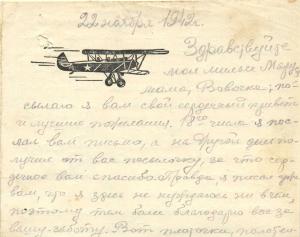 22 ноября 1942г.
Здравствуйте
мои милые
мама, Вовочка; по-
сылаю я вам свой сердечный привет
и лучшие пожелания. 18го числа я пос-
лал вам письмо, а на другой день по-
лучил от вас посылочку, за что сер-
дечное вам спасибо. Правда, я писал
вам, что я здесь не нуждаюсь ни в чем,
поэтому тем более благодарю вас за
вашу заботу. Вот платочки,